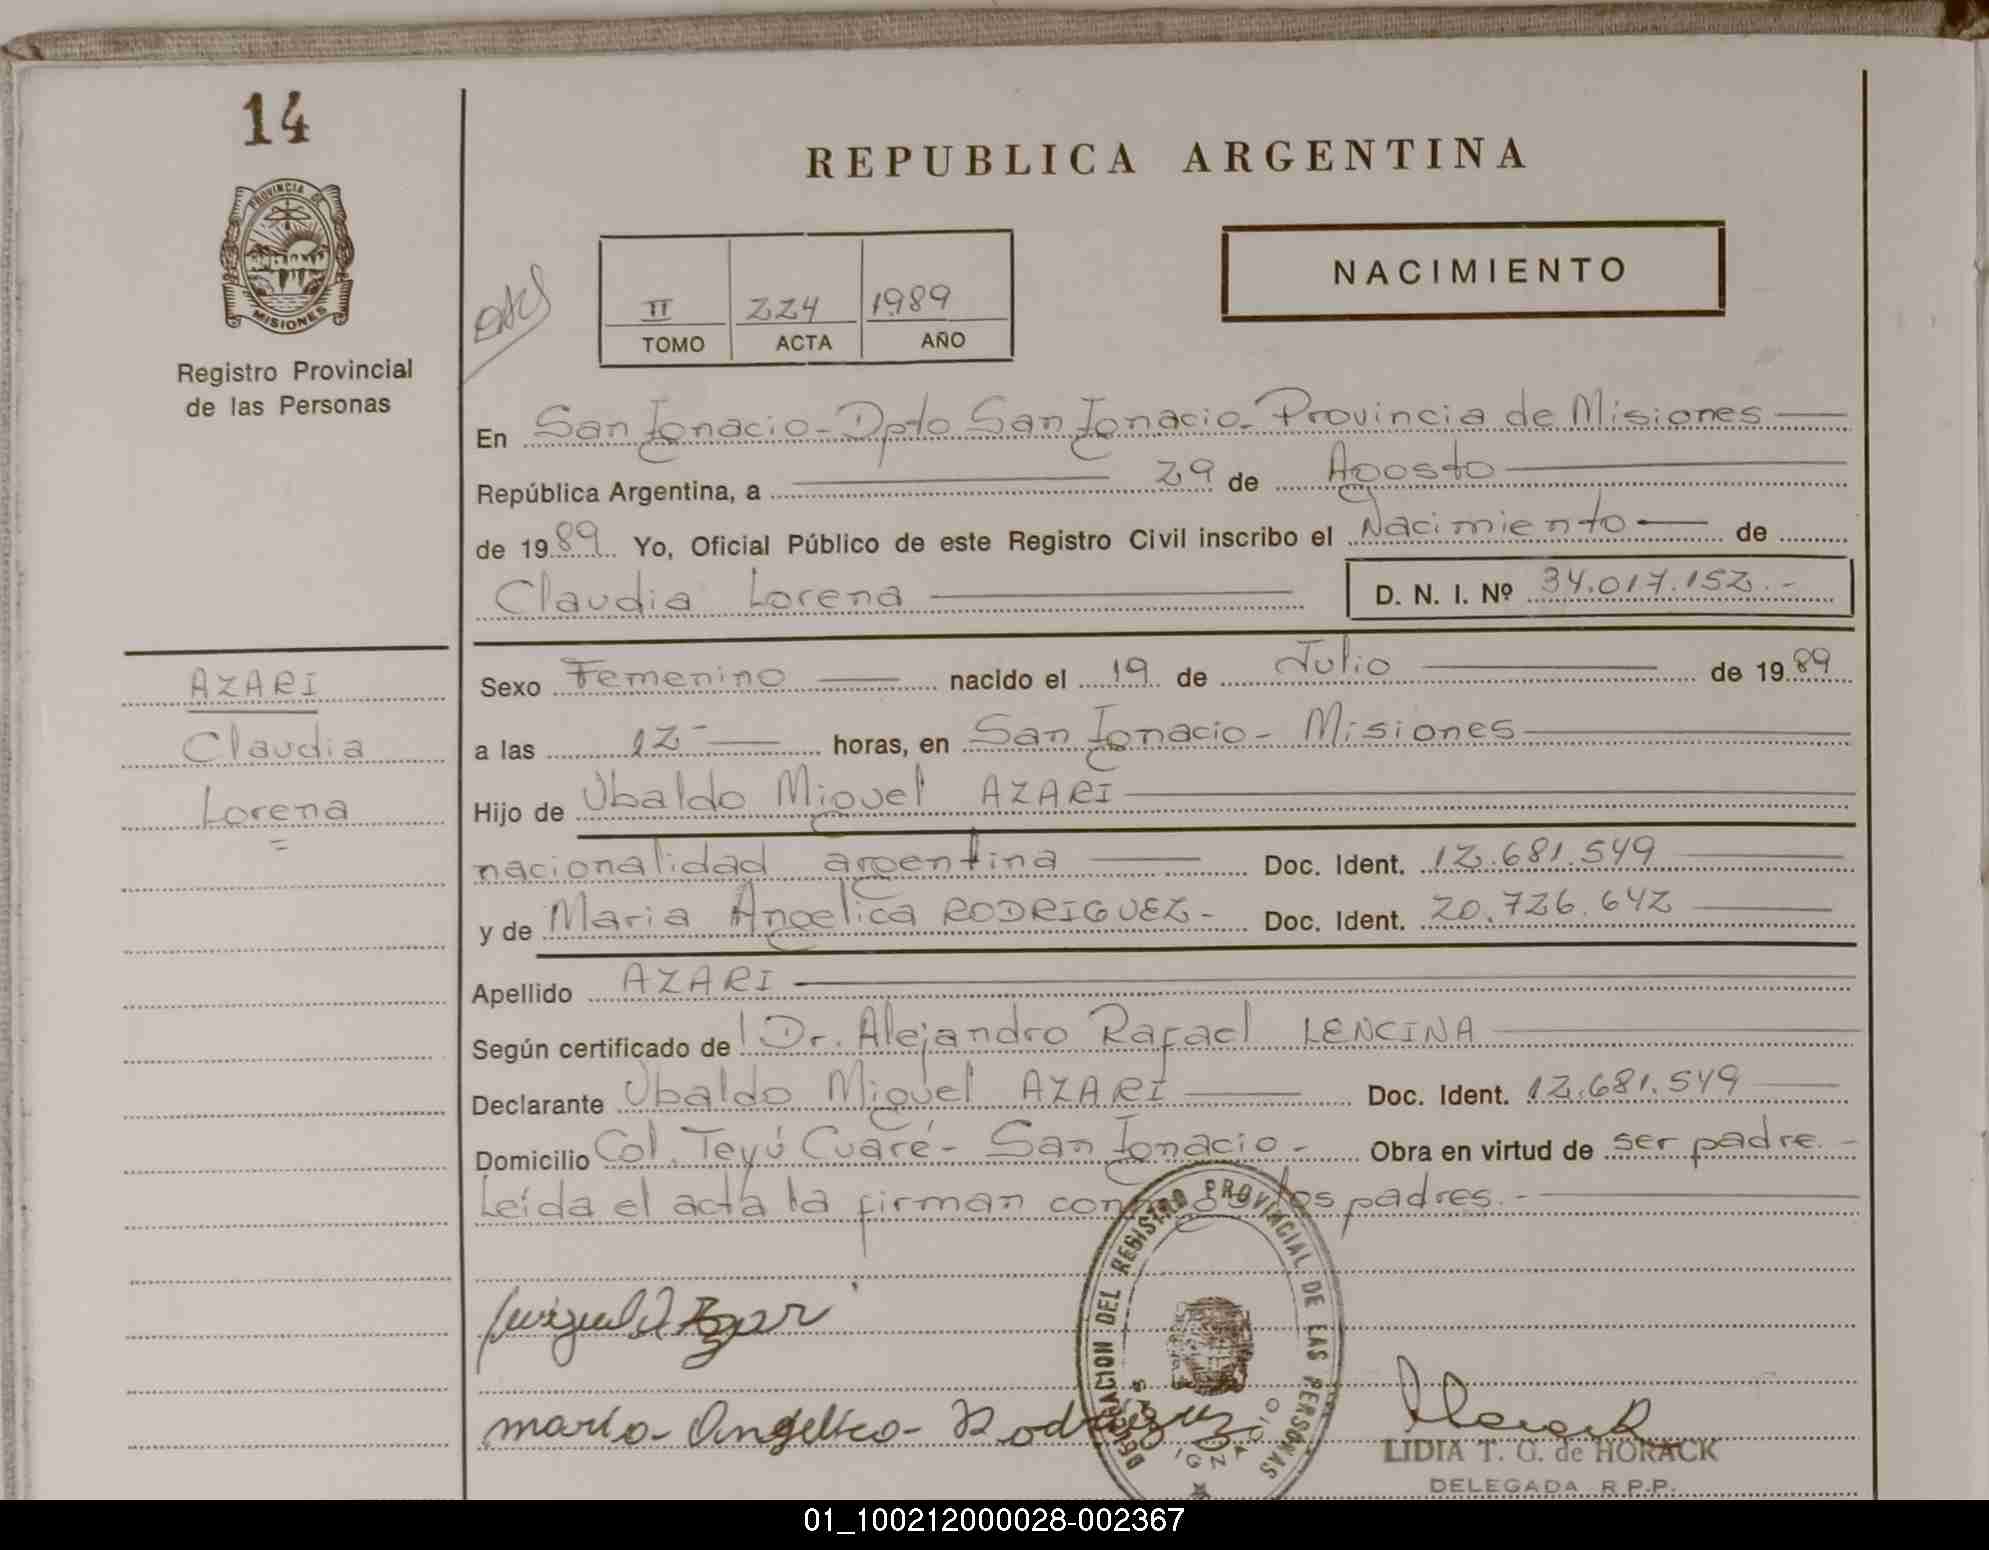 14
REPUBLICA ARGENTINA
PROVINCIA DE
MISIONES
NACIMIENTO
II 224 1989
TOMO ACTA AÑO
Registro Provincial
de las Personas
En San Ignacio - Dpto San Ignacio - Provincia de Misiones
República Argentina, a 29 de Agosto
de 1989 Yo, Oficial Público de este Registro Civil inscribo el Nacimiento de
Claudia Lorena D. N. I. Nº 34.017.152.-
AZARI
Claudia
Lorena
Sexo Femenino nacido el 19 de Julio de 1989
a las 12 horas, en San Ignacio - Misiones
Hijo de Ubaldo Miguel AZARI
nacionalidad argentina Doc. Ident. 12.681.549
y de Maria Angelica RODRIGUEZ - Doc. Ident. 20.726.642
Apellido AZARI
Según certificado de Dr. Alejandro Rafael LENCINA
Declarante Ubaldo Miguel AZARI Doc. Ident. 12.681.549
Domicilio Col. Teyú Cuaré - San Ignacio - Obra en virtud de ser padre. -
Leída el acta la firman conmigo los padres. -
DELEGACION DEL REGISTRO PROVINCIAL DE LAS PERSONAS
Maria Angelica Rodriguez
LIDIA T. G. de HORACK
DELEGADA R.P.P.
01_100212000028-002367